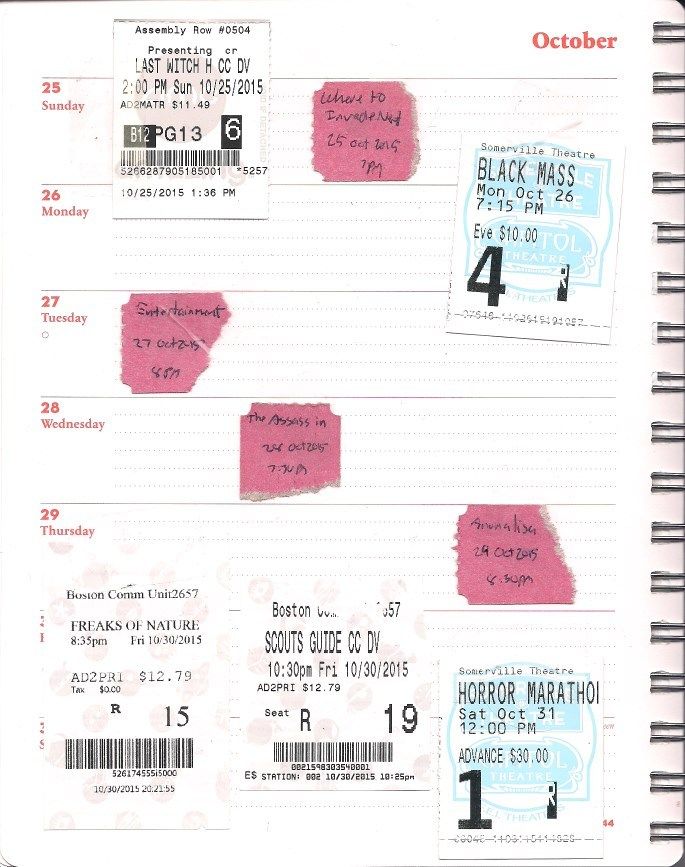 October
25
Sunday
Assembly Row #0504
Presenting cr
LAST WITCH H CC DV
2:00 PM Sun 10/25/2015
AD2MATR $11.49
B12 PG13 6
5266287905185001 *5257
10/25/2015 1:36 PM
Where to
Invade Next
25 Oct 2015
7PM
26
Monday
Somerville Theatre
BLACK MASS
Mon Oct 26
7:15 PM
Eve $10.00
4
27
Tuesday
Entertainment
27 Oct 2015
8PM
28
Wednesday
The Assassin
28 Oct 2015
7:30PM
29
Thursday
Anomalisa
29 Oct 2015
8:30pm
Boston Comm Unit2657
FREAKS OF NATURE
8:35pm Fri 10/30/2015
AD2PRI $12.79
Tax $0.00
R 15
526174555i5000
10/30/2015 20:21:55
Boston
SCOUTS GUIDE CC DV
10:30pm Fri 10/30/2015
AD2PRI $12.79
Seat R 19
0021598303540001
E$ STATION: 002 10/30/2015 10:25pm
Somerville Theatre
HORROR MARATHO
Sat Oct 31
12:00 PM
ADVANCE $30.00
1
R
44